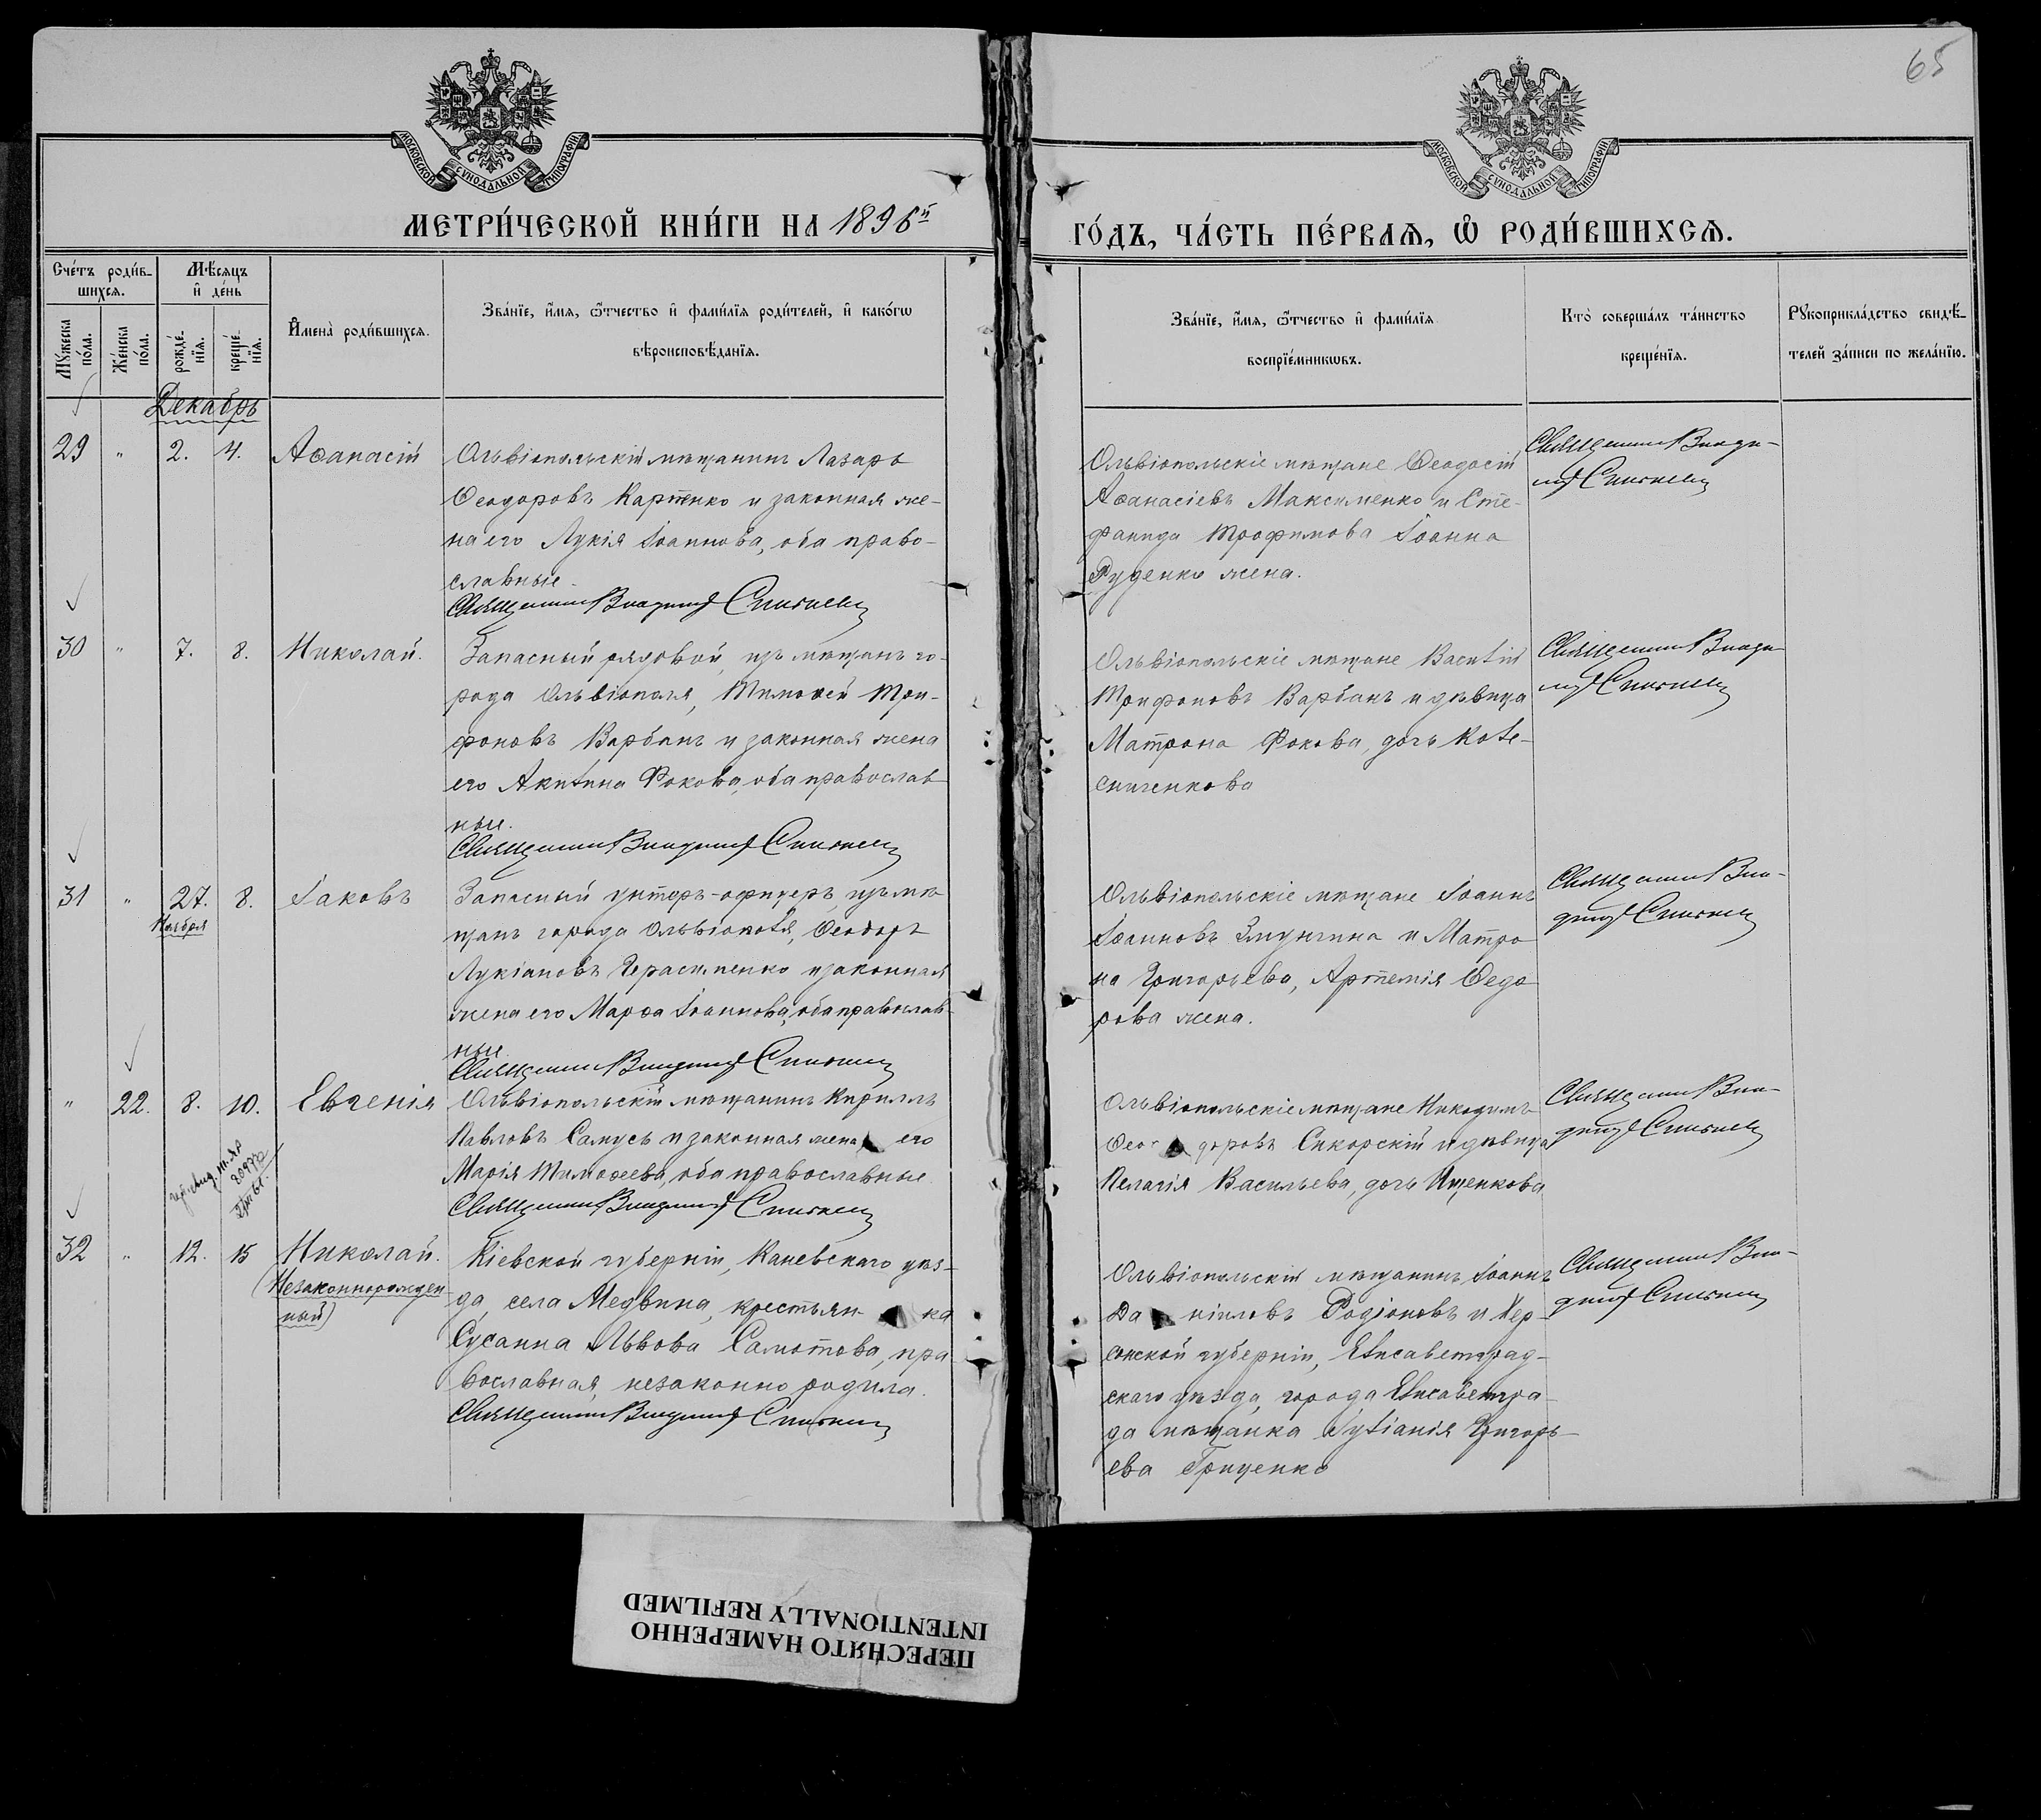 65
МОСКОВСКОЙ СУНОДАЛЬНОЙ ТИПОГРАФІИ
МОСКОВСКОЙ СУНОДАЛЬНОЙ ТИПОГРАФІИ
МЕТРИ́ЧЕСКОЙ КНИ́ГИ НА 1896й
ГО́ДЪ, ЧА́СТЬ ПЕ́РВАѦ, Ѡ РОДИ́ВШИХСѦ.
Сче́тъ роди́в-
шихсѧ.
Мꙋ́жеска по́ла.
Же́нска по́ла.
Мѣ́сѧцъ
и҆ де́нь
рожде́-
нїѧ.
креще́-
нїѧ.
И҆мена̀ роди́вшихсѧ.
Зва́нїе, и҆́мѧ, ѻ҆́тчество и҆ фами́лїѧ роди́телей, и҆ како́гѡ
вѣроисповѣ́данїѧ.
Зва́нїе, и҆́мѧ, ѻ҆́тчество и҆ фами́лїѧ
воспрїе́мникѡвъ.
Кто̀ соверша́лъ та́инство
креще́нїѧ.
Рꙋкоприкла́дство свидѣ́-
телей за́писи по жела́нїю.
Декабрь
29 " 2. 4. Аѳанасій
Ольвіопольскій мѣщанинъ Лазарь
Ѳеодоровъ Карпенко и законная же-
на его Лукія Іоаннова, оба право-
славные.
Священникъ Владиміръ
Ольвіопольскіе мѣщане Ѳеодосій
Аѳанасіевъ Максименко и Сте-
фанида Трофимова Іоанна
Руденко жена.
Священникъ Влади-
міръ
30 " 7. 8. Николай.
Запасный рядовой, изъ мѣщанъ го-
рода Ольвіополя, Тимоѳей Три-
фоновъ Варбанъ и законная жена
его Акилина Фокова, оба православ-
ные.
Священникъ Владиміръ
Ольвіопольскіе мѣщане Василій
Трифоновъ Варбанъ и дѣвица
Матрона Фокова, дочь Коле-
сниченкова
Священникъ Влади-
міръ
31 " 27. 8. Іаковъ
Ноября
Запасный унтеръ-офицеръ, изъ мѣ-
щанъ города Ольвіополя, Ѳеодоръ
Лукіановъ Герасименко и законная
жена его Марѳа Іоаннова, оба православ-
ные.
Священникъ Владиміръ
Ольвіопольскіе мѣщане Іоаннъ
Іоанновъ и Матро-
на Григорьева, Артемія Ѳедо-
рова жена.
Священникъ Вла-
диміръ
" 22. 8. 10. Евгенія
Ольвіопольскій мѣщанинъ Кириллъ
Павловъ Самусь и законная жена его
Марія Тимоѳеева, оба православные
Священникъ Владиміръ
Ольвіопольскіе мѣщане Никодимъ
Ѳеодоровъ Сикорскій и дѣвица
Пелагія Васильева, дочь Ищенкова
Священникъ Вла-
диміръ
32 " 12. 15 Николай.
(Незаконнорожден-
ный)
Кіевской губерніи, Каневскаго уѣз-
да, села Медвина, крестьянка
Сусанна Львова Самотова, пра-
вославная, незаконно родила.
Священникъ Владиміръ
Ольвіопольскій мѣщанинъ Іоаннъ
Даніиловъ Родіоновъ и Хер-
сонской губерніи, Елисаветград-
скаго уѣзда, города Елисаветгра-
да мѣщанка Іуліанія Григорь-
ева Гриценко
Священникъ Вла-
диміръ
ПЕРЕСНЯТО НАМЕРЕННО
INTENTIONALLY REFILMED